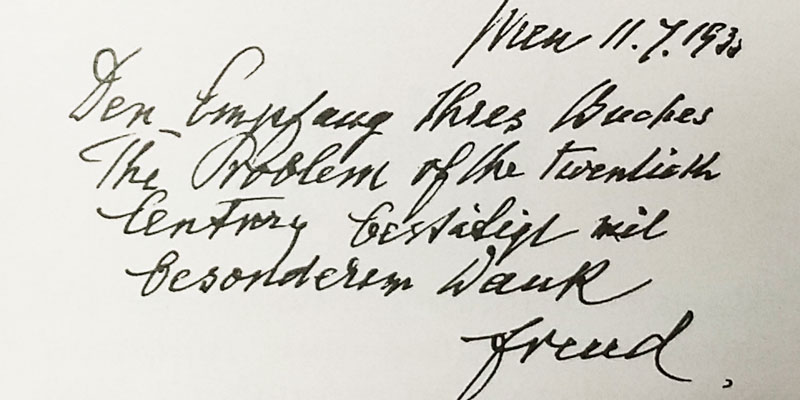 Wien 11.7.193
Den Empfang Ihres Buches
The Problem of the Twentieth
Century bestätigt mit
besonderem Dank
Freud.